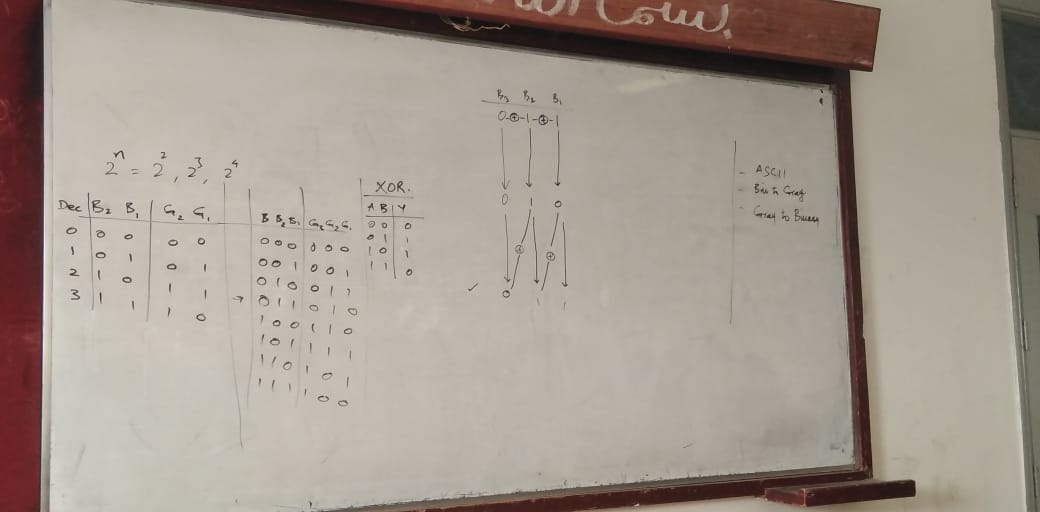 2ⁿ = 2², 2³, 2⁴
Dec B₂ B₁ G₂ G₁
0 0 0 0 0
1 0 1 0 1
2 1 0 1 1
3 1 1 1 0
B B₂ B₁ G₃ G₂ G₁
0 0 0 0 0 0
0 0 1 0 0 1
0 1 0 0 1 1
→ 0 1 1 0 1 0
1 0 0 1 1 0
1 0 1 1 1 1
1 1 0 1 0 1
1 1 1 1 0 0
XOR.
A B Y
0 0 0
0 1 1
1 0 1
1 1 0
B₃ B₂ B₁
0-⊕-1-⊕-1
0 1 0
⊕ ⊕
✓ 0 1 1
- ASCII
- Bin to Gray
- Gray to Binary